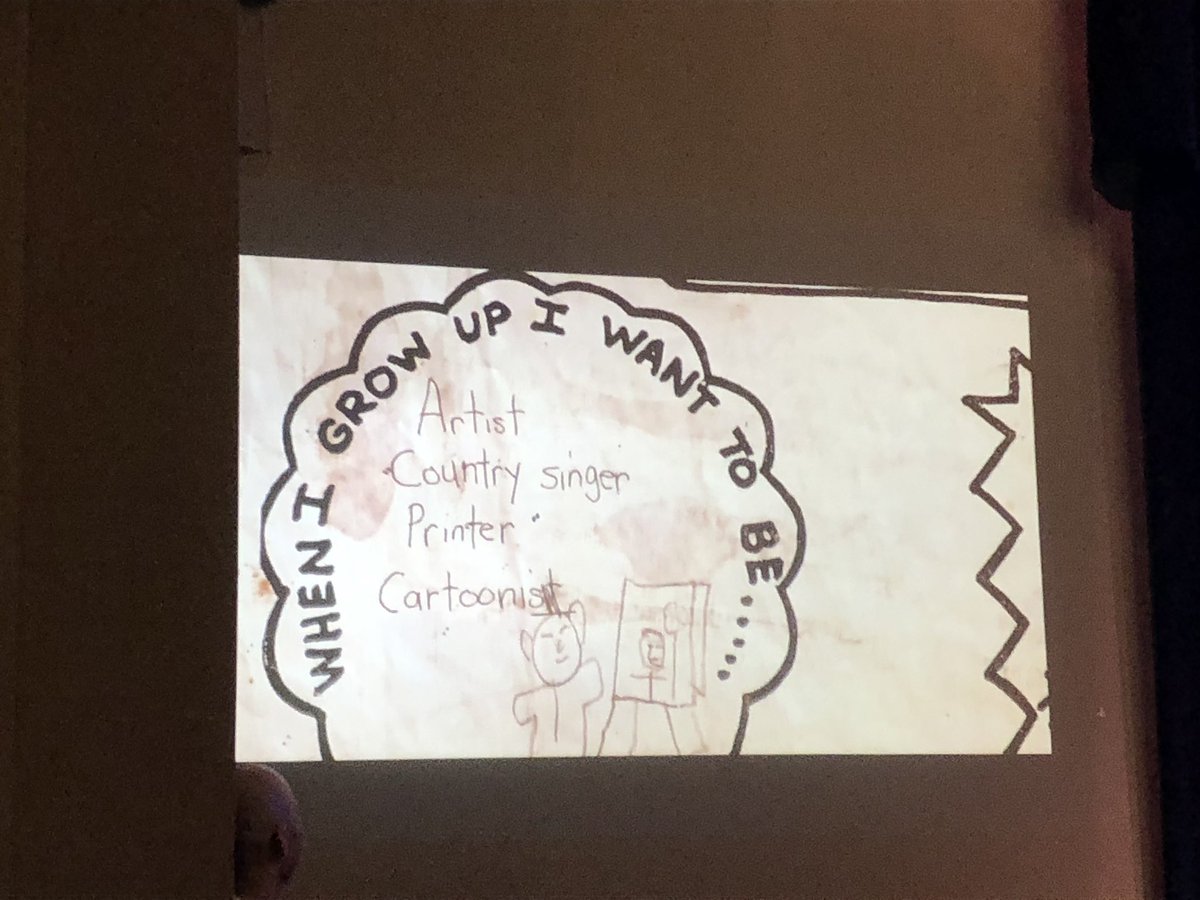 WHEN I GROW UP I WANT TO BE.....
Artist
Country singer
Printer
Cartoonist